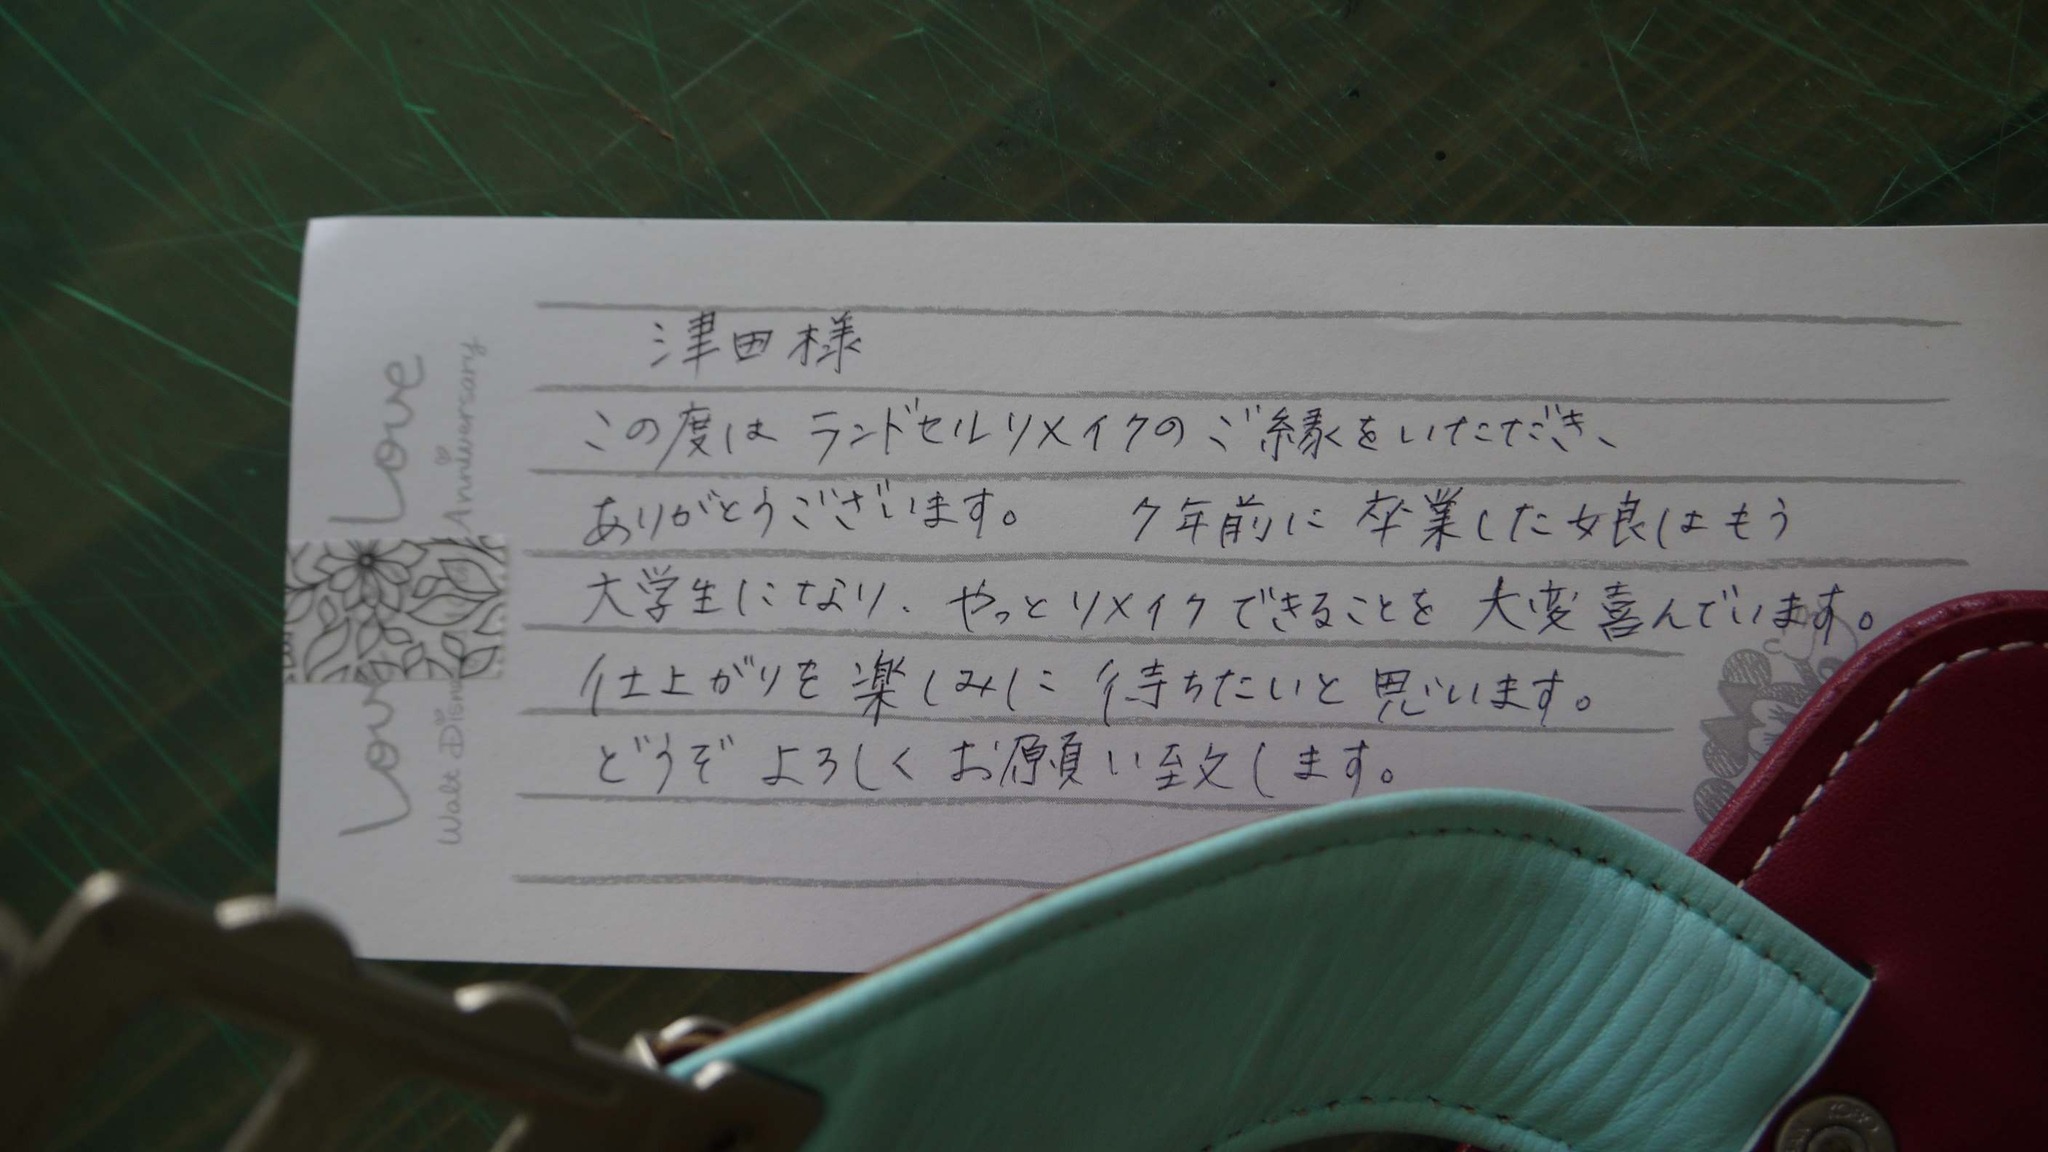 津田様
この度は ランドセルリメイクの ご縁をいただき、
ありがとうございます。 7年前に 卒業した娘はもう
大学生になり、やっとリメイクできることを 大変喜んでいます。
仕上がりを 楽しみに 待ちたいと 思います。
どうぞ よろしく お願い致します。
Love
Love
Walt Disn
Anniversary